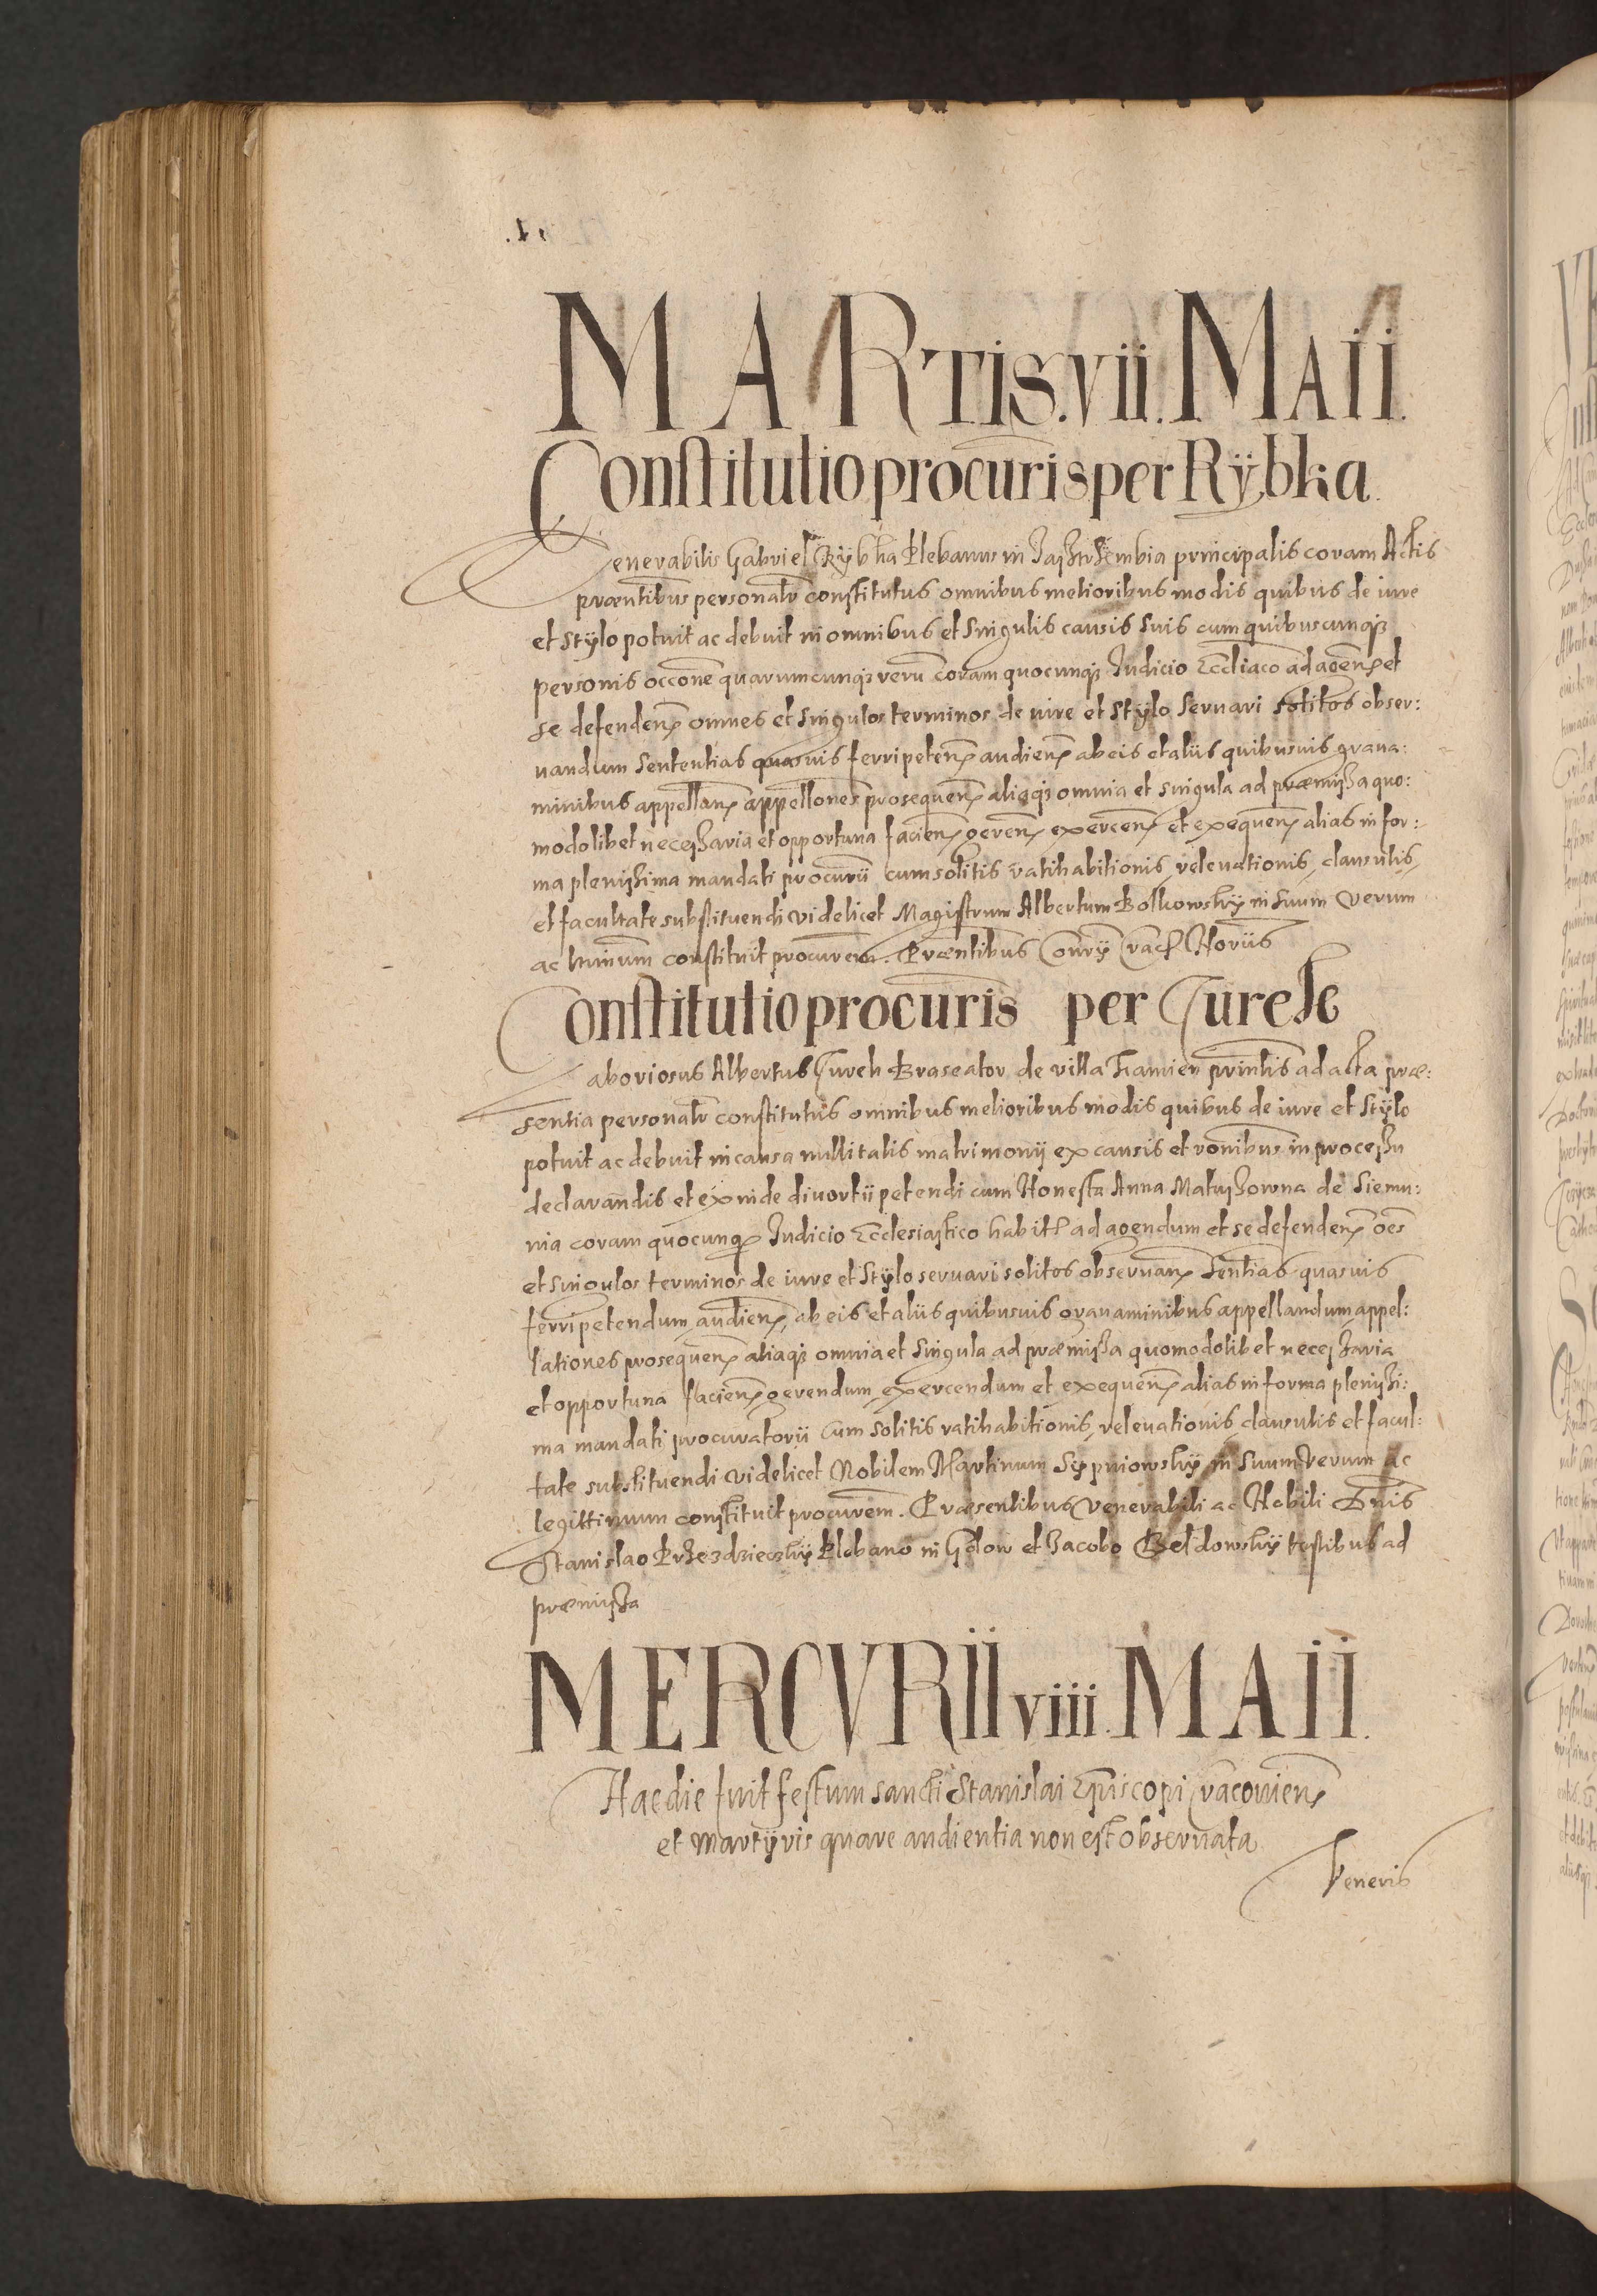 MARTIS. VII. MAII.
Constitutio procuris per Rÿbka.
Venerabilis Gabriel Rÿbka Plebanus in principalis coram Actis
præntibus personalr constitutus omnibus melioribus modis quibus de iure
et stÿlo potuit ac debuit in omnibus et singulis causis suis cum quibuscunqȝ
personis occone quarumcunqȝ reru coram quocunqȝ Iudicio Eccliaco ad agen et
se defenden omnes et singulos terminos de iure et stÿlo seruari solitos obser:
uandum sententias quasuis ferri peten audien ab eis et aliis quibusuis graua:
minibus appellan appellones prosequen aliaqȝ omnia et singula ad præmissa quo:
modolibet necessaria et opportuna facien geren exercen et exequen alias in for:
ma plenissima mandati procurii cum solitis ratihabitionis, releuationis, clausulis,
et facultate substituendi videlicet Magistrum Albertum Bolkowskÿ in suum verum
ac ltimum constituit procurem. Præntibus Norijs
Constitutio procuris per Curek
Laboriosus Albertus Curek Braseator de villa prinlis ad acta præ:
sentia personalr constitutus omnibus melioribus modis quibus de iure et stÿlo
potuit ac debuit in causa nullitatis matrimonij ex causis et ronibus in processu
declarandis et exinde diuortii petendi cum Honesta Anna Matyszowna de Siemu:
nia coram quocunqȝ Iudicio Ecclesiastico habitt ad agendum et se defenden oes
et singulos terminos de iure et stÿlo seruari solitos obseruan sentias quasuis
ferri petendum, audien, ab eis et aliis quibusuis grauaminibus appellandum appel:
lationes prosequen aliaqȝ omnia et singula ad præmissa quomodolibet necessaria
et opportuna facien gerendum exercendum et exequen alias in forma plenissi:
ma mandati procuratorii cum solitis ratihabitionis, releuationis, clausulis et facul:
tate substituendi videlicet Nobilem Martinum Sÿpniowskÿ in suum verum ac
legittimum constituit procurem. Præsentibus venerabili ac Nobili Dnis
Stanislao Przezdzieczkÿ Plebano in Golow et Jacobo Beldowskÿ testibus ad
præmissa
MERCVRII VIII. MAII.
Hac die fuit festum sancti Stanislai Episcopi Cracouien
et Martÿris quare audientia non est obseruata
Veneris